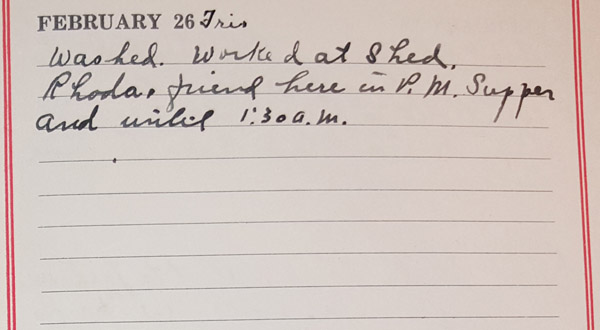 FEBRUARY 26 Fri.
Washed. Worked at Shed.
Rhoda, friend here in P.M. Supper
and until 1:30 a.m.